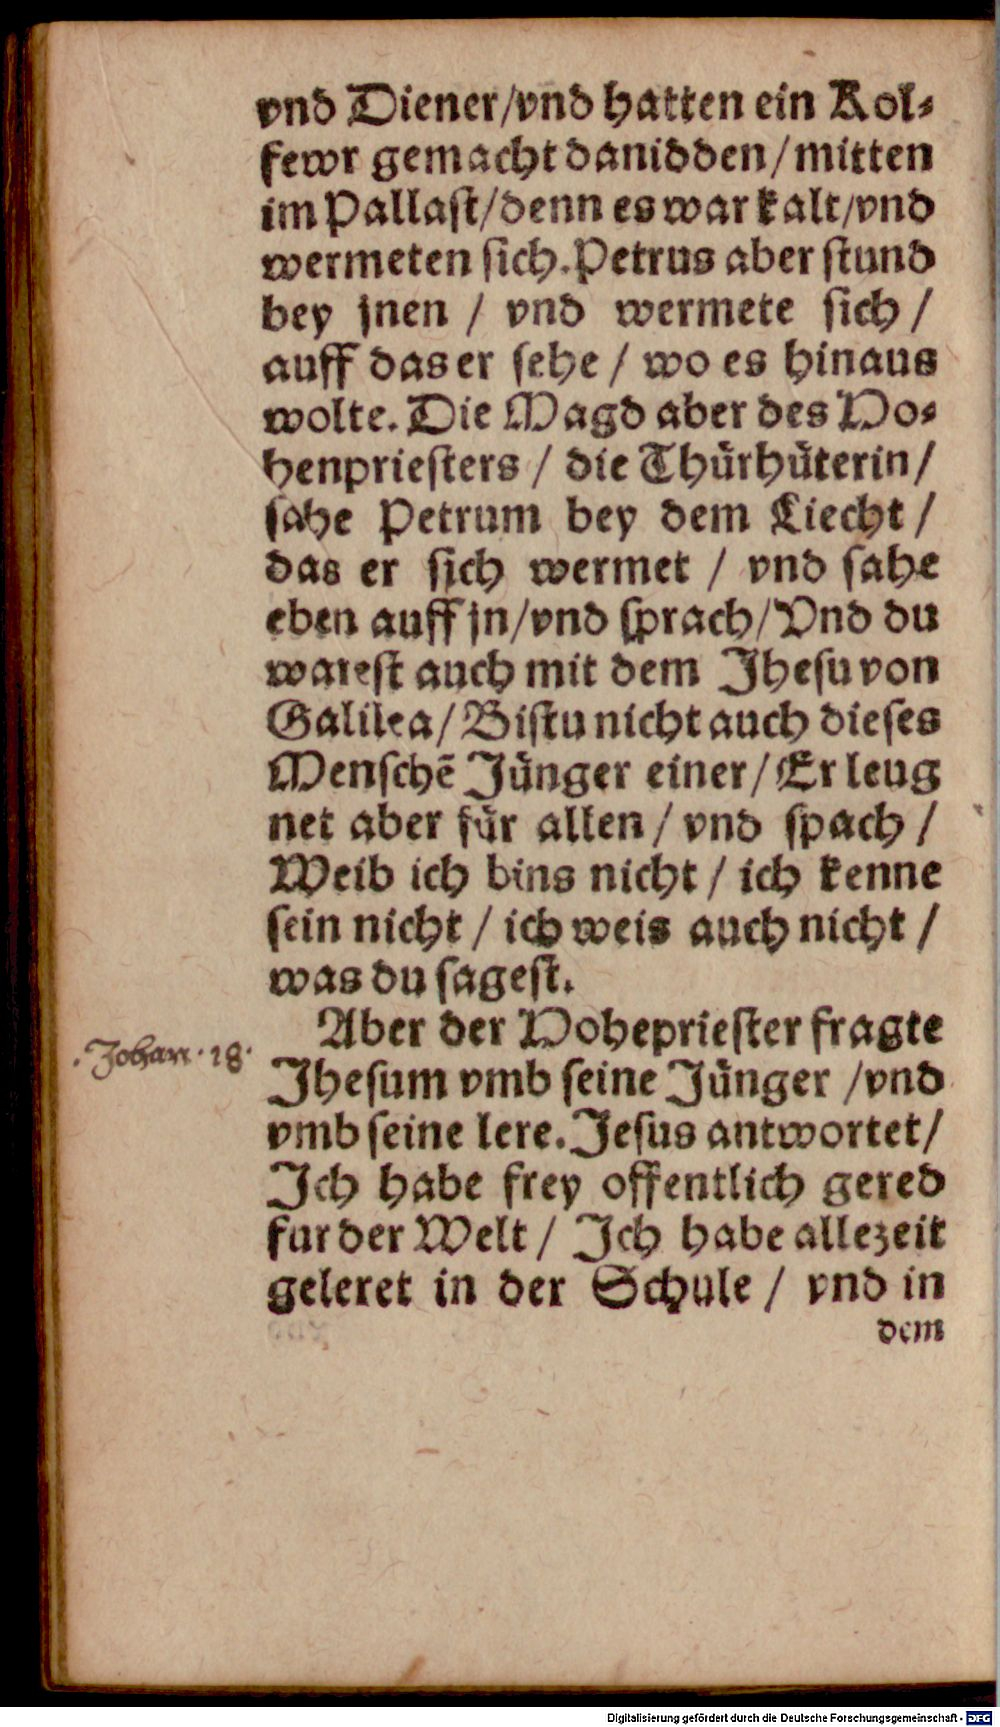 vnd Diener/vnd hatten ein Kol⸗
fewr gemacht danidden/mitten
im Pallast/denn es war kalt/vnd
wermeten sich.Petrus aber stund
bey jnen / vnd wermete sich /
auff das er sehe / wo es hinaus
wolte. Die Magd aber des Ho⸗
henpriesters / die Thuͤrhuͤterin /
sahe Petrum bey dem Liecht /
das er sich wermet / vnd sahe
eben auff jn/vnd sprach/Vnd du
warest auch mit dem Jhesu von
Galilea/ Bistu nicht auch dieses
Menschē Juͤnger einer/ Er leug
net aber fuͤr allen / vnd spach /
Weib ich bins nicht / ich kenne
sein nicht / ich weis auch nicht /
was du sagest.
Aber der Hohepriester fragte
.Johan.18.
Jhesum vmb seine Juͤnger /vnd
vmb seine lere. Jesus antwortet/
Jch habe frey offentlich gered
fur der Welt / Jch habe allezeit
geleret in der Schule / vnd in
dem
Digitalisierung gefördert durch die Deutsche Forschungsgemeinschaft - DFG